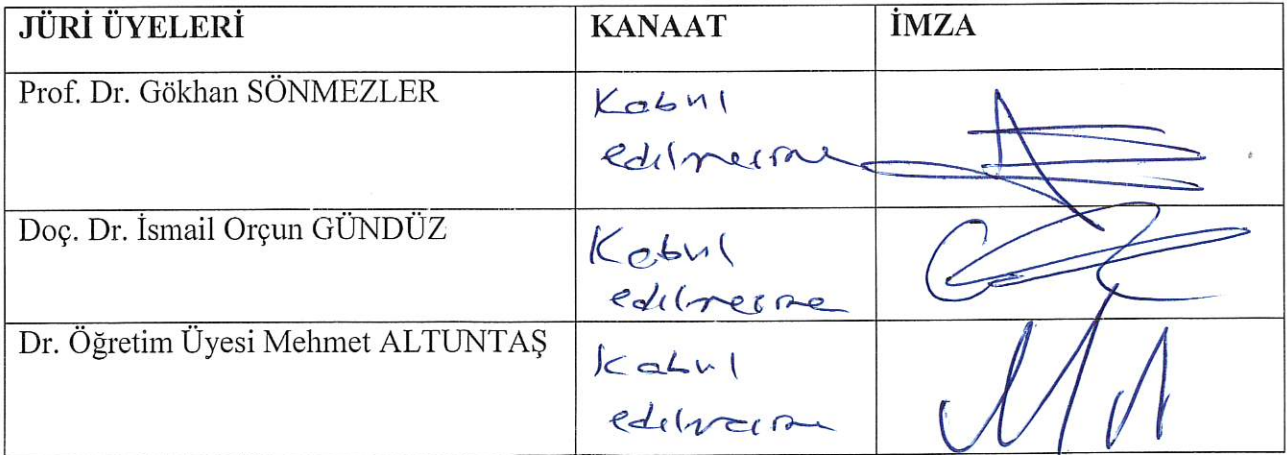 JÜRİ ÜYELERİ KANAAT İMZA
Prof. Dr. Gökhan SÖNMEZLER Kabul
edilmesine
Doç. Dr. İsmail Orçun GÜNDÜZ Kabul
edilmesine
Dr. Öğretim Üyesi Mehmet ALTUNTAŞ Kabul
edilmesine